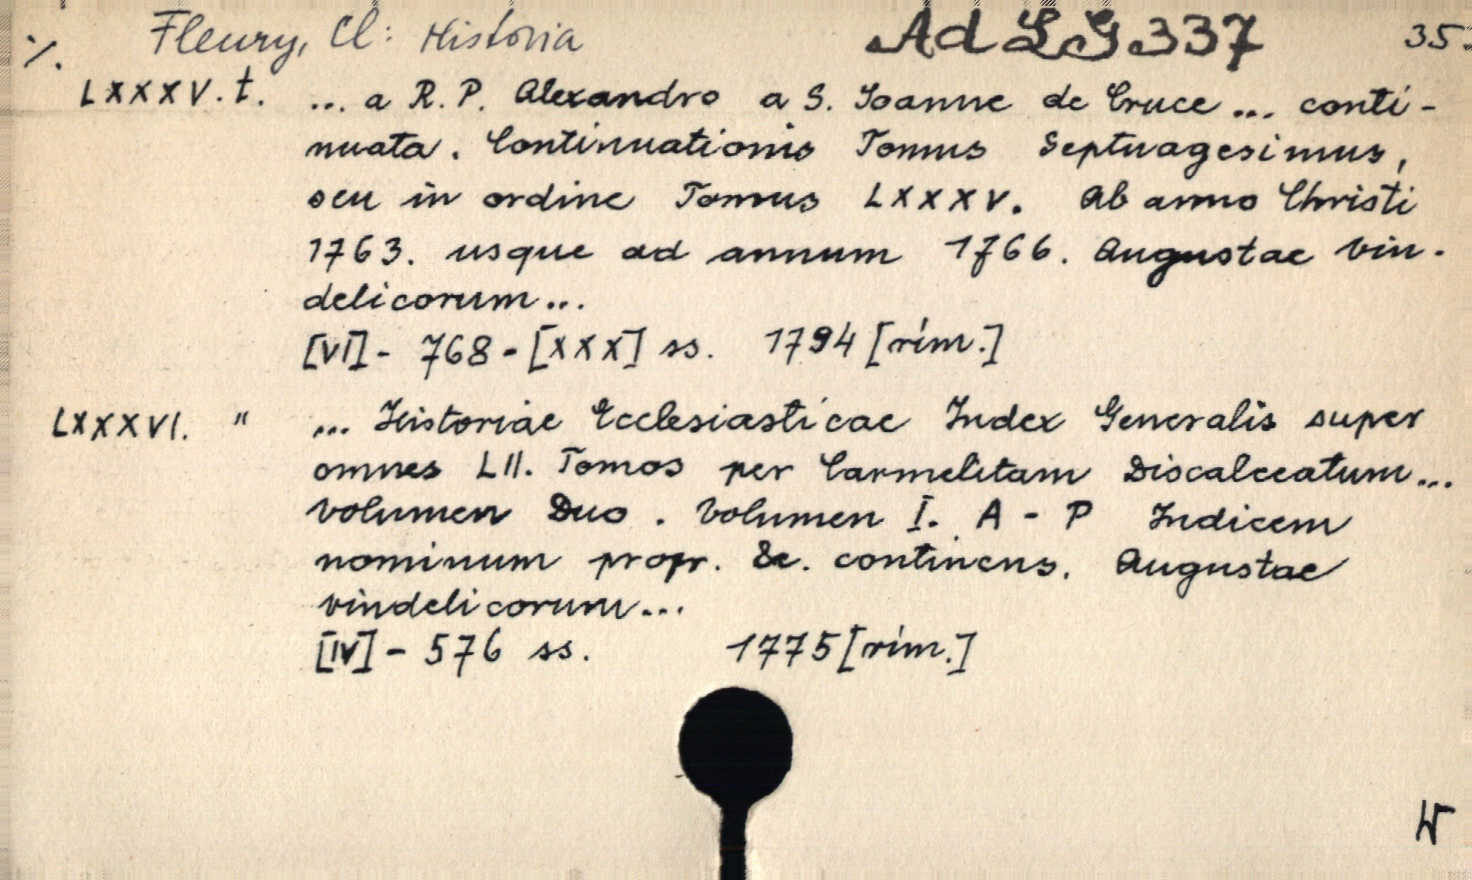 ·/. Fleury, Cl: Historia Ad LG 337 35
LXXXV. t. ... a R. P. Alexandro a S. Joanne de Cruce ... conti-
nuata. Continuationis Tomus Septuagesimus,
seu in ordine Tomus LXXXV. Ab anno Christi
1763. usque ad annum 1766. Augustae Vin-
delicorum...
[VI] - 768 - [XXX] ss. 1794 [rím.]
LXXXVI. " ... Historiae Ecclesiasticae Index Generalis super
omnes LII. Tomos per Carmelitam Discalceatum...
Volumen Duo. Volumen I. A - P Indicem
nominum propr. &c. continens. Augustae
vindelicorum...
[IV] - 576 ss. 1775 [rím.]
W